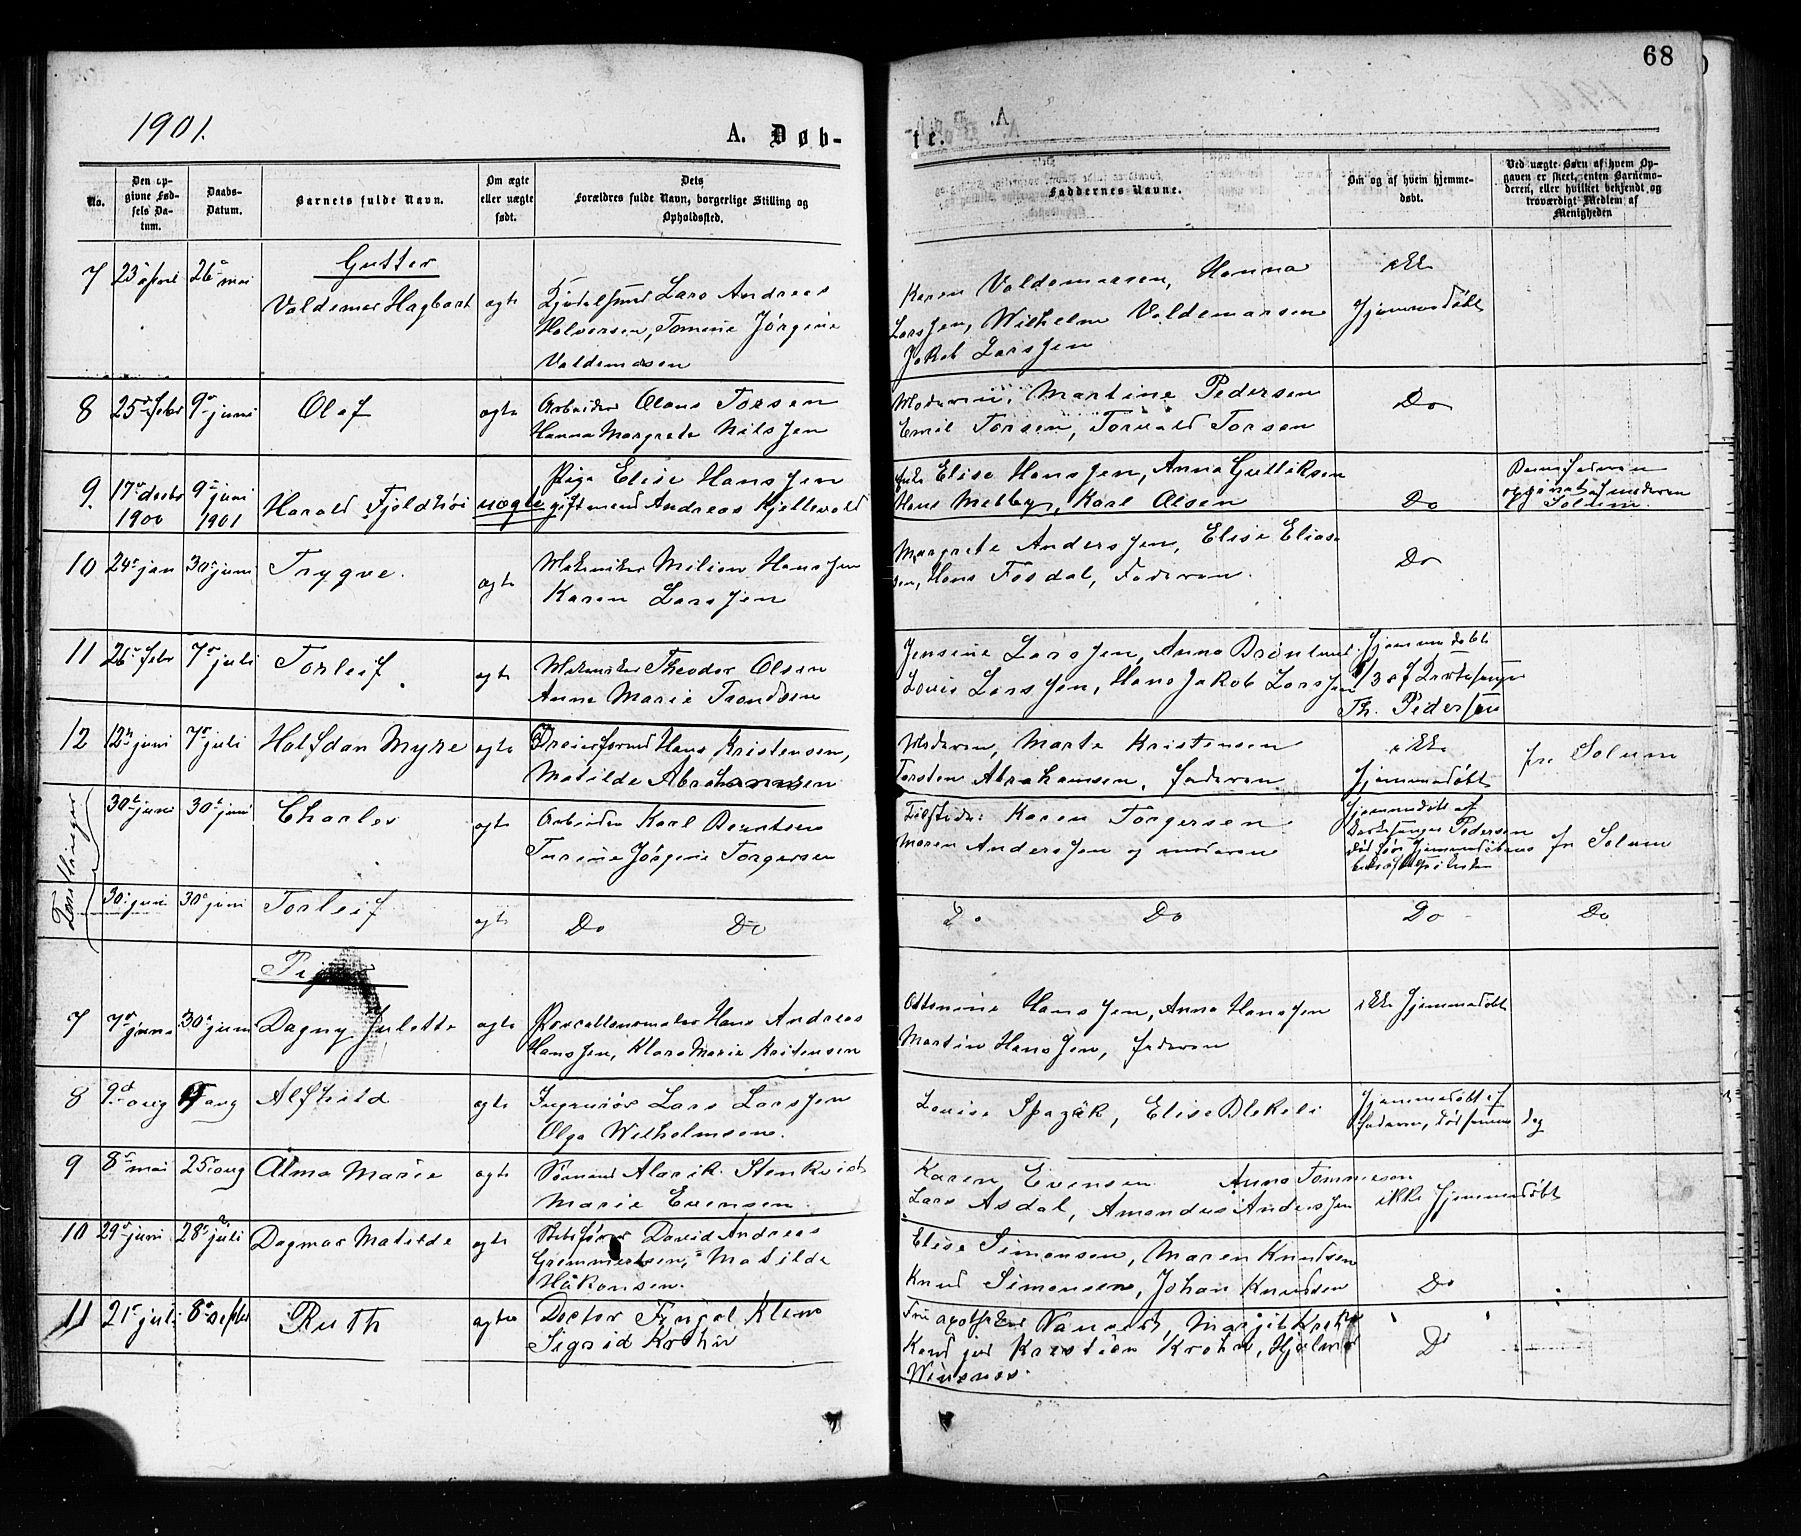 68
1901.
A. Døb-
te.
No.
Den op-
givne Fød-
sels Da-
tum.
Daabs-
Datum.
Barnets fulde Navn.
Om ægte
eller uægte
født.
Dets
Forældres fulde Navn, borgerlige Stilling og
Opholdssted.
Faddernes Navne.
Om og af hvem hjemme-
døbt.
Ved uægte Børn af hvem Op-
gaven er skeet, enten Barnemo-
deren, eller hvilket bekjendt og
troværdigt Medlem af
Menigheden
Gutter
7 23 april 26 mai Valdemar Hagbart ægte
Lars Andreas
Halvorsen, Tomine Jørgine
Valdemarsen
Karen Valdemarsen, Hanna
Larssen, Wilhelm Valdemarsen
Jakob Larssen
ikke
hjemmedøbt
8 25 febr 9 juni Olaf ægte
Arbeider Olaus Torsen
Hanna Margrete Nilssen
Moderen, Martine Pedersen
Emil Torsen, Torvald Torsen
Do
9. 17 decbr 1900 9 juni 1901 Harald Fjeldhøi uægte
Pige Elise Hanssen
gift mand Andreas Kjellevold
Elise Hanssen, Anna Gulliksen
Hans Melby, Karl Olsen
Do
Solum.
10 24 jan 30 juni Trygve. ægte
Mekaniker Milian Hanssen
Karen Larssen
Margrete Anderssen, Elise Elias-
sen, Hans Fosdal, Faderen.
Do
11 26 febr 7 juli Torleif ægte
Mekaniker Theodor Olsen
Anne Marie Trondsen
Jensine Larssen, Anna Brønlund
Louis Larssen, Hans Jakob Larssen
Hjemmedøbt
Th. Pedersen
12 12 juni 7 juli Halfdan Myre ægte
Dreierformd Hans Kristensen,
Matilde Abrahamsen
Moderen, Marte Kristensen
Torsten Abrahamsen, faderen
ikke
hjemmedøbt
fra Solum
Tvillinger
30 juni 30 juni Charles ægte
Arbeider Karl Berntsen
Turine Jørgine Torgersen
Karen Torgersen
Maren Anderssen og moderen
hjemmedøbt af
Kirkesanger Pedersen
fr Solum
30 juni 30 juni Torleif ægte
Do Do
Do Do Do Do
Piger
7 7 juni 30 juni Dagny Julette ægte
Porcellænsmaler Hans Andreas
Hanssen, Klara Marie Kristensen
Ottomine Hanssen, Anna Hanssen
Martin Hanssen, faderen
ikke hjemmedøbt
8 9 aug 9 aug Alfhild ægte
Ingeniør Lars Larssen
Olga Wilhelmsen.
Louise Spazök, Elise Blekeli
Hjemmedøbt af
faderen, død samme dag
9 8 mai 25 aug Alma Marie ægte
Sømand Alarik Stenkvist
Marie Evensen.
Karen Evensen Anna Tommesen
Lars Asdal, Amandus Anderssen
ikke hjemmedøbt
10 29 juni 28 juli Dagmar Matilde ægte
David Andreas
Matilde
Håkonsen.
Elise Simonsen, Maren Knudsen
Knud Simonsen, Johan Knudsen
Do
11 21 juli 8 septbr Ruth ægte
Doctor Fingal Klem
Sigrid Krohn
Fru apotheker Margit Krohn
Kand jur Kristian Krohn, Hjalmar
Winsnes.
Do